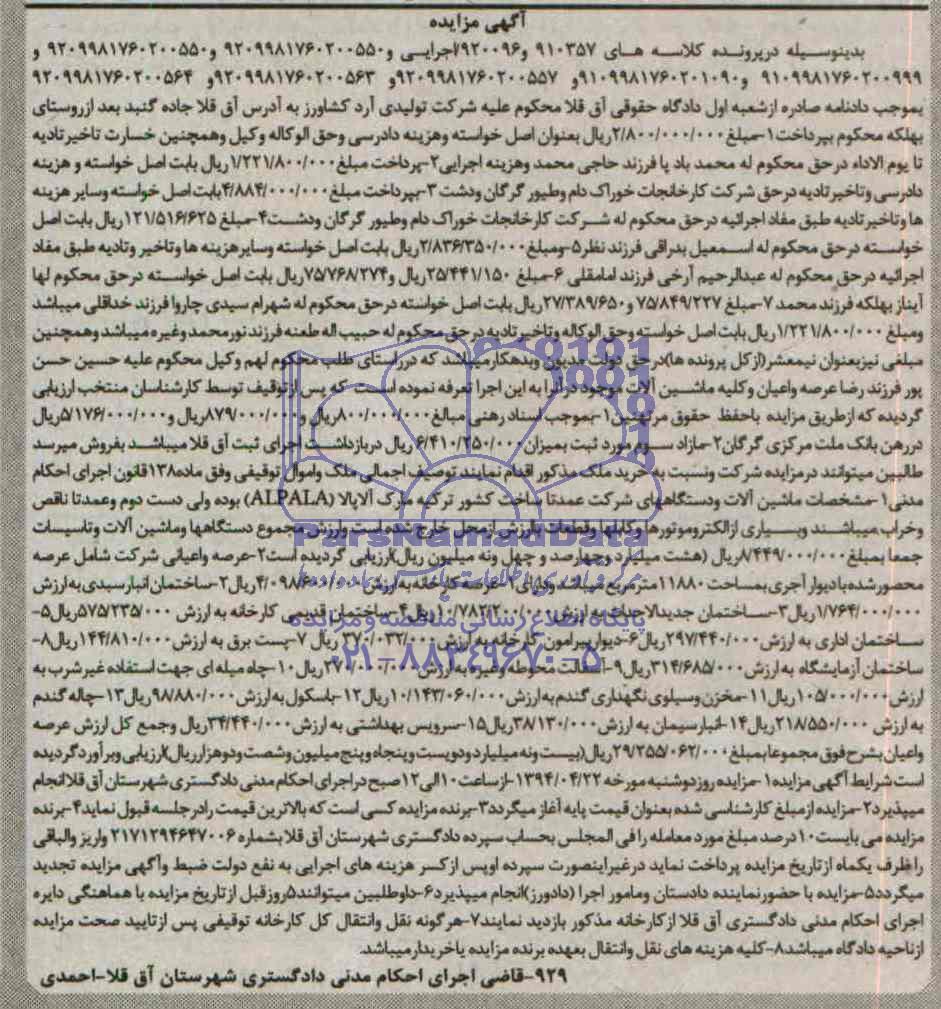 آگهی مزایده
بدینوسیله درپرونده کلاسه های ۹۱۰۳۵۷ و۹۲۰۰۹۶/اجرایی و۹۲۰۹۹۸۱۷۶۰۲۰۰۵۵۰ و۹۲۰۹۹۸۱۷۶۰۲۰۰۵۵۰ و
۹۱۰۹۹۸۱۷۶۰۲۰۰۹۹۹ و۹۱۰۹۹۸۱۷۶۰۲۰۱۰۹۰و ۹۲۰۹۹۸۱۷۶۰۲۰۰۵۵۷و ۹۲۰۹۹۸۱۷۶۰۲۰۰۵۶۳و ۹۲۰۹۹۸۱۷۶۰۲۰۰۵۶۴
بموجب دادنامه صادره ازشعبه اول دادگاه حقوقی آق قلا محکوم علیه شرکت تولیدی آرد کشاورز به آدرس آق قلا جاده گنبد بعد ازروستای
بهلکه محکوم بپرداخت۱-مبلغ۲/۸۰۰/۰۰۰/۰۰۰ریال بعنوان اصل خواسته وهزینه دادرسی وحق الوکاله وکیل وهمچنین خسارت تاخیرتادیه
تا یوم الاداء درحق محکوم له محمد باد پا فرزند حاجی محمد وهزینه اجرایی۲-پرداخت مبلغ۱/۲۲۱/۸۰۰/۰۰۰ ریال بابت اصل خواسته و هزینه
دادرسی وتاخیرتادیه درحق شرکت کارخانجات خوراک دام وطیور گرگان ودشت ۳-بپرداخت مبلغ۴/۸۸۴/۰۰۰/۰۰۰بابت اصل خواسته وسایر هزینه
ها وتاخیرتادیه طبق مفاد اجرائیه درحق محکوم له شرکت کارخانجات خوراک دام وطیور گرگان ودشت۴-مبلغ ۱۲۱/۵۱۶/۶۲۵ریال بابت اصل
خواسته درحق محکوم له اسمعیل بدراقی فرزند نظر۵-ومبلغ۲/۸۳۶/۳۵۰/۰۰۰ریال بابت اصل خواسته وسایرهزینه ها وتاخیر وتادیه طبق مفاد
اجرائیه درحق محکوم له عبدالرحیم آرخی فرزند امامقلی ۶-مبلغ ۲۵/۴۴۱/۱۵۰ریال و۷۵/۷۶۸/۲۷۴ریال بابت اصل خواسته درحق محکوم لها
آیناز بهلکه فرزند محمد ۷-مبلغ ۷۵/۸۴۹/۲۲۷ و۲۷/۳۸۹/۶۵۰ریال بابت اصل خواسته درحق محکوم له شهرام سیدی چاروا فرزند خداقلی میباشد
ومبلغ ۱/۲۲۱/۸۰۰/۰۰۰ ریال بابت اصل خواسته وحق الوکاله وتاخیر تادیه درحق محکوم له حبیب اله طعنه فرزند نورمحمد وغیره میباشد وهمچنین
مبلغی نیزبعنوان نیمعشر(ازکل پرونده ها)درحق دولت مدیون وبدهکارمیباشد که درراستای طلب محکوم لهم وکیل محکوم علیه حسین حسن
پور فرزند رضا عرصه واعیان وکلیه ماشین آلات موجود درآنرا به این اجرا تعرفه نموده است که پس ازتوقیف توسط کارشناسان منتخب ارزیابی
گردیده که ازطریق مزایده باحفظ حقوق مرتهنین۱-بموجب اسناد رهنی مبالغ۸۰۰/۰۰۰/۰۰۰ریال و۸۷۹/۰۰۰/۰۰۰ریال و۵/۱۷۶/۰۰۰/۰۰۰ریال
دررهن بانک ملت مرکزی گرگان۲-مازاد سوم مورد ثبت بمیزان۶/۴۱۰/۲۵۰/۰۰۰ ریال دربازداشت اجرای ثبت آق قلا میباشد بفروش میرسد
طالبین میتوانند درمزایده شرکت ونسبت به خرید ملک مذکور اقدام نمایند توصیف اجمالی ملک واموال توقیفی وفق ماده۱۳۸قانون اجرای احکام
مدنی۱-مشخصات ماشین آلات ودستگاههای شرکت عمدتا ساخت کشور ترکیه مارک آلاپالا (ALPALA) بوده ولی دست دوم وعمدتا ناقص
وخراب میباشند وبسیاری ازالکتروموتورها وکابلها وقطعات باارزش ازمحل خارج شده است وارزش مجموع دستگاهها وماشین آلات وتاسیسات
جمعا بمبلغ۸/۴۴۹/۰۰۰/۰۰۰ریال (هشت میلیارد وچهارصد و چهل ونه میلیون ریال)ارزیابی گردیده است۲-عرصه واعیانی شرکت شامل عرصه
محصورشده بادیوار آجری بمساحت ۱۱۸۸۰مترمربع میباشد ودارای۱-عرصه کارخانه به ارزش ۴/۰۹۸/۶۰۰/۰۰۰ریال۲-ساختمان انبارسبدی به ارزش
۱/۷۶۴/۰۰۰/۰۰۰ریال۳-ساختمان جدیدالاحداث به ارزش۱۰/۷۸۲/۲۰۰/۰۰۰ ریال۴-ساختمان قدیمی کارخانه به ارزش ۵۷۵/۲۳۵/۰۰۰ریال۵-
ساختمان اداری به ارزش۲۹۷/۴۴۰/۰۰۰ریال۶-دیوارپیرامون کارخانه به ارزش۳۷۰/۰۳۲/۰۰۰ ریال ۷-پست برق به ارزش ۱۴۴/۸۱۰/۰۰۰ریال۸-
ساختمان آزمایشگاه به ارزش۳۱۴/۶۸۵/۰۰۰ریال۹-آسفالت محوطه وغیره به ارزش ریال۱۰-چاه میله ای جهت استفاده غیرشرب به
ارزش۱۰۵/۰۰۰/۰۰۰ریال۱۱-مخزن وسیلوی نگهداری گندم به ارزش۱۰/۱۴۳/۰۶۰/۰۰۰ریال۱۲-باسکول به ارزش۹۸/۸۸۰/۰۰۰ریال۱۳-چاله گندم
به ارزش ۲۱۸/۵۵۰/۰۰۰ریال۱۴-انبارسیمان به ارزش۳۸/۱۳۰/۰۰۰ریال۱۵-سرویس بهداشتی به ارزش۳۴/۴۴۰/۰۰۰ریال وجمع کل ارزش عرصه
واعیان بشرح فوق مجموعا بمبلغ ۲۹/۲۵۵/۰۶۲/۰۰۰ریال(بیست ونه میلیارد ودویست وپنجاه وپنج میلیون وشصت ودوهزارریال)ارزیابی وبرآوردگردیده
است شرایط آگهی مزایده۱-مزایده روزدوشنبه مورخه ۱۳۹۴/۰۴/۲۲-ازساعت۱۰الی۱۲صبح دراجرای احکام مدنی دادگستری شهرستان آق قلاانجام
میپذیرد۲-مزایده ازمبلغ کارشناسی شده بعنوان قیمت پایه آغاز میگردد۳-برنده مزایده کسی است که بالاترین قیمت رادرجلسه قبول نماید۴-برنده
مزایده می بایست۱۰درصد مبلغ مورد معامله رافی المجلس بحساب سپرده دادگستری شهرستان آق قلا بشماره ۲۱۷۱۲۹۴۶۴۷۰۰۶ واریز والباقی
راظرف یکماه ازتاریخ مزایده پرداخت نماید درغیراینصورت سپرده اوپس ازکسر هزینه های اجرایی به نفع دولت ضبط وآگهی مزایده تجدید
میگردد۵-مزایده با حضورنماینده دادستان ومامور اجرا (دادورز)انجام میپذیرد۶-داوطلبین میتوانند۵روزقبل ازتاریخ مزایده با هماهنگی دایره
اجرای احکام مدنی دادگستری آق قلا ازکارخانه مذکور بازدید نمایند۷-هرگونه نقل وانتقال کل کارخانه توقیفی پس ازتایید صحت مزایده
ازناحیه دادگاه میباشد۸-کلیه هزینه های نقل وانتقال بعهده برنده مزایده یاخریدارمیباشد.
۹۲۹-قاضی اجرای احکام مدنی دادگستری شهرستان آق قلا-احمدی
ParsNamadData
پایگاه اطلاع رسانی مناقصه و مزایده
۰۲۱-۸۸۳۴۹۶۷۰-۵